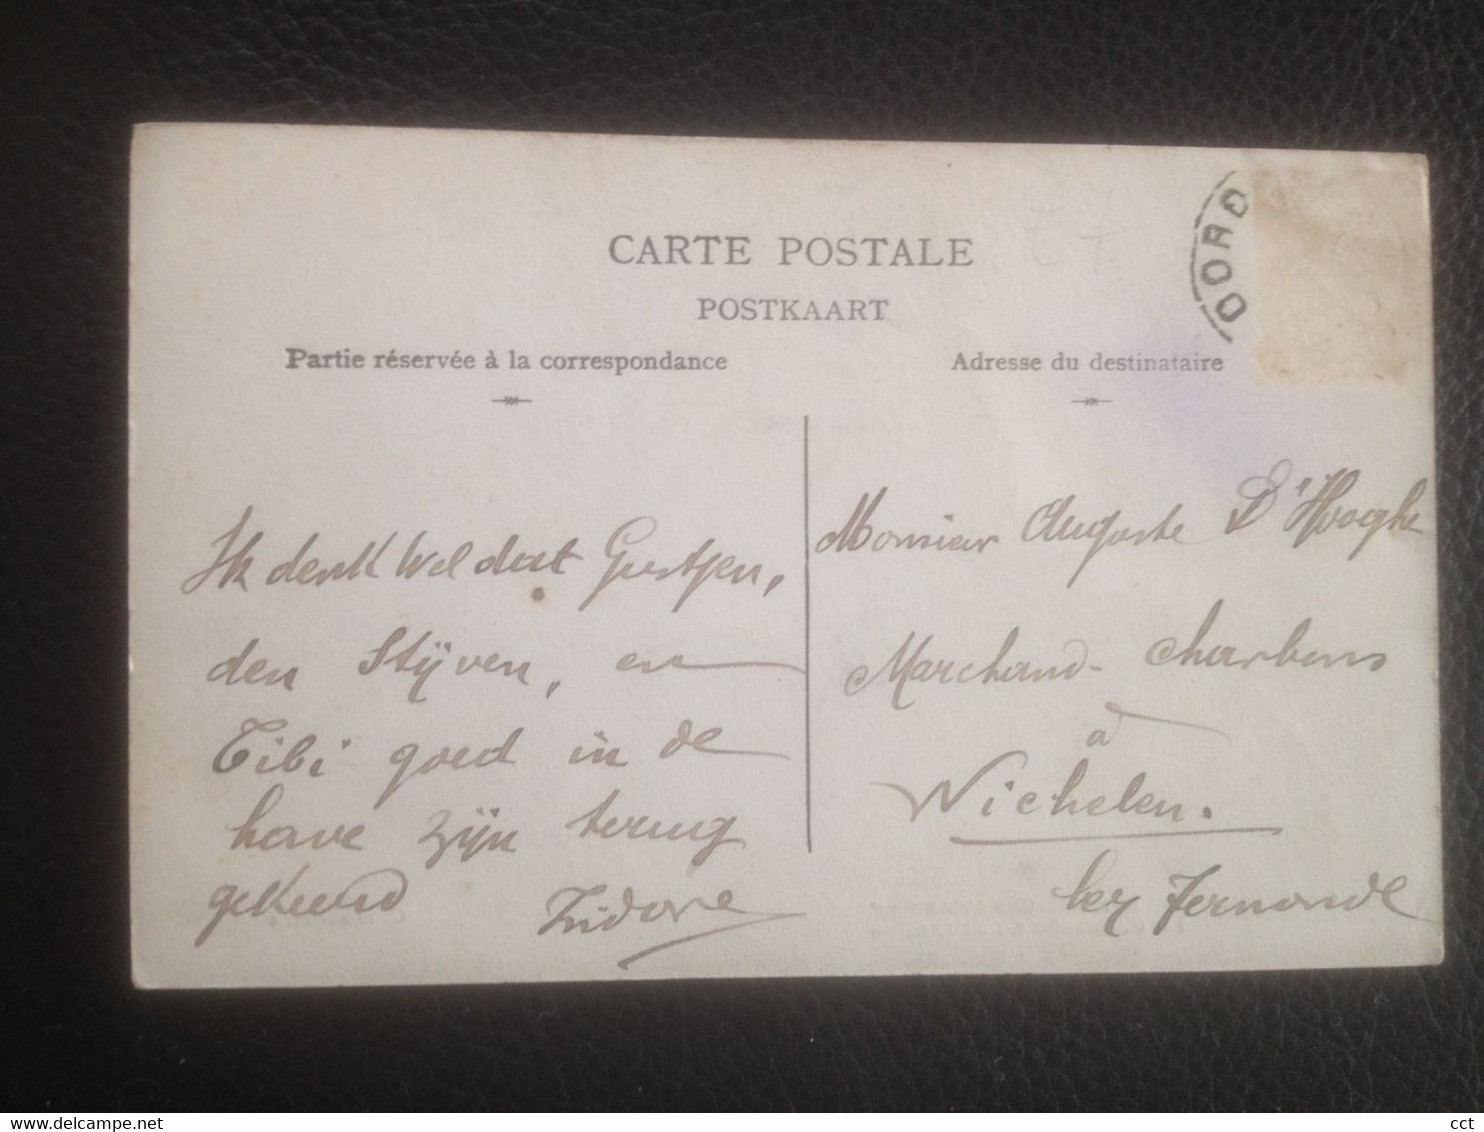 CARTE POSTALE
POSTKAART
Partie réservée à la correspondance
Adresse du destinataire
OORD
Ik denk wel dat Gustjen,
den Stijven, en
Tibi goed in de
have zijn terug
gekeerd Isidore
Monsieur Auguste D'Hooghe
Marchand charbons
à
Wichelen.
lez Termonde
cct